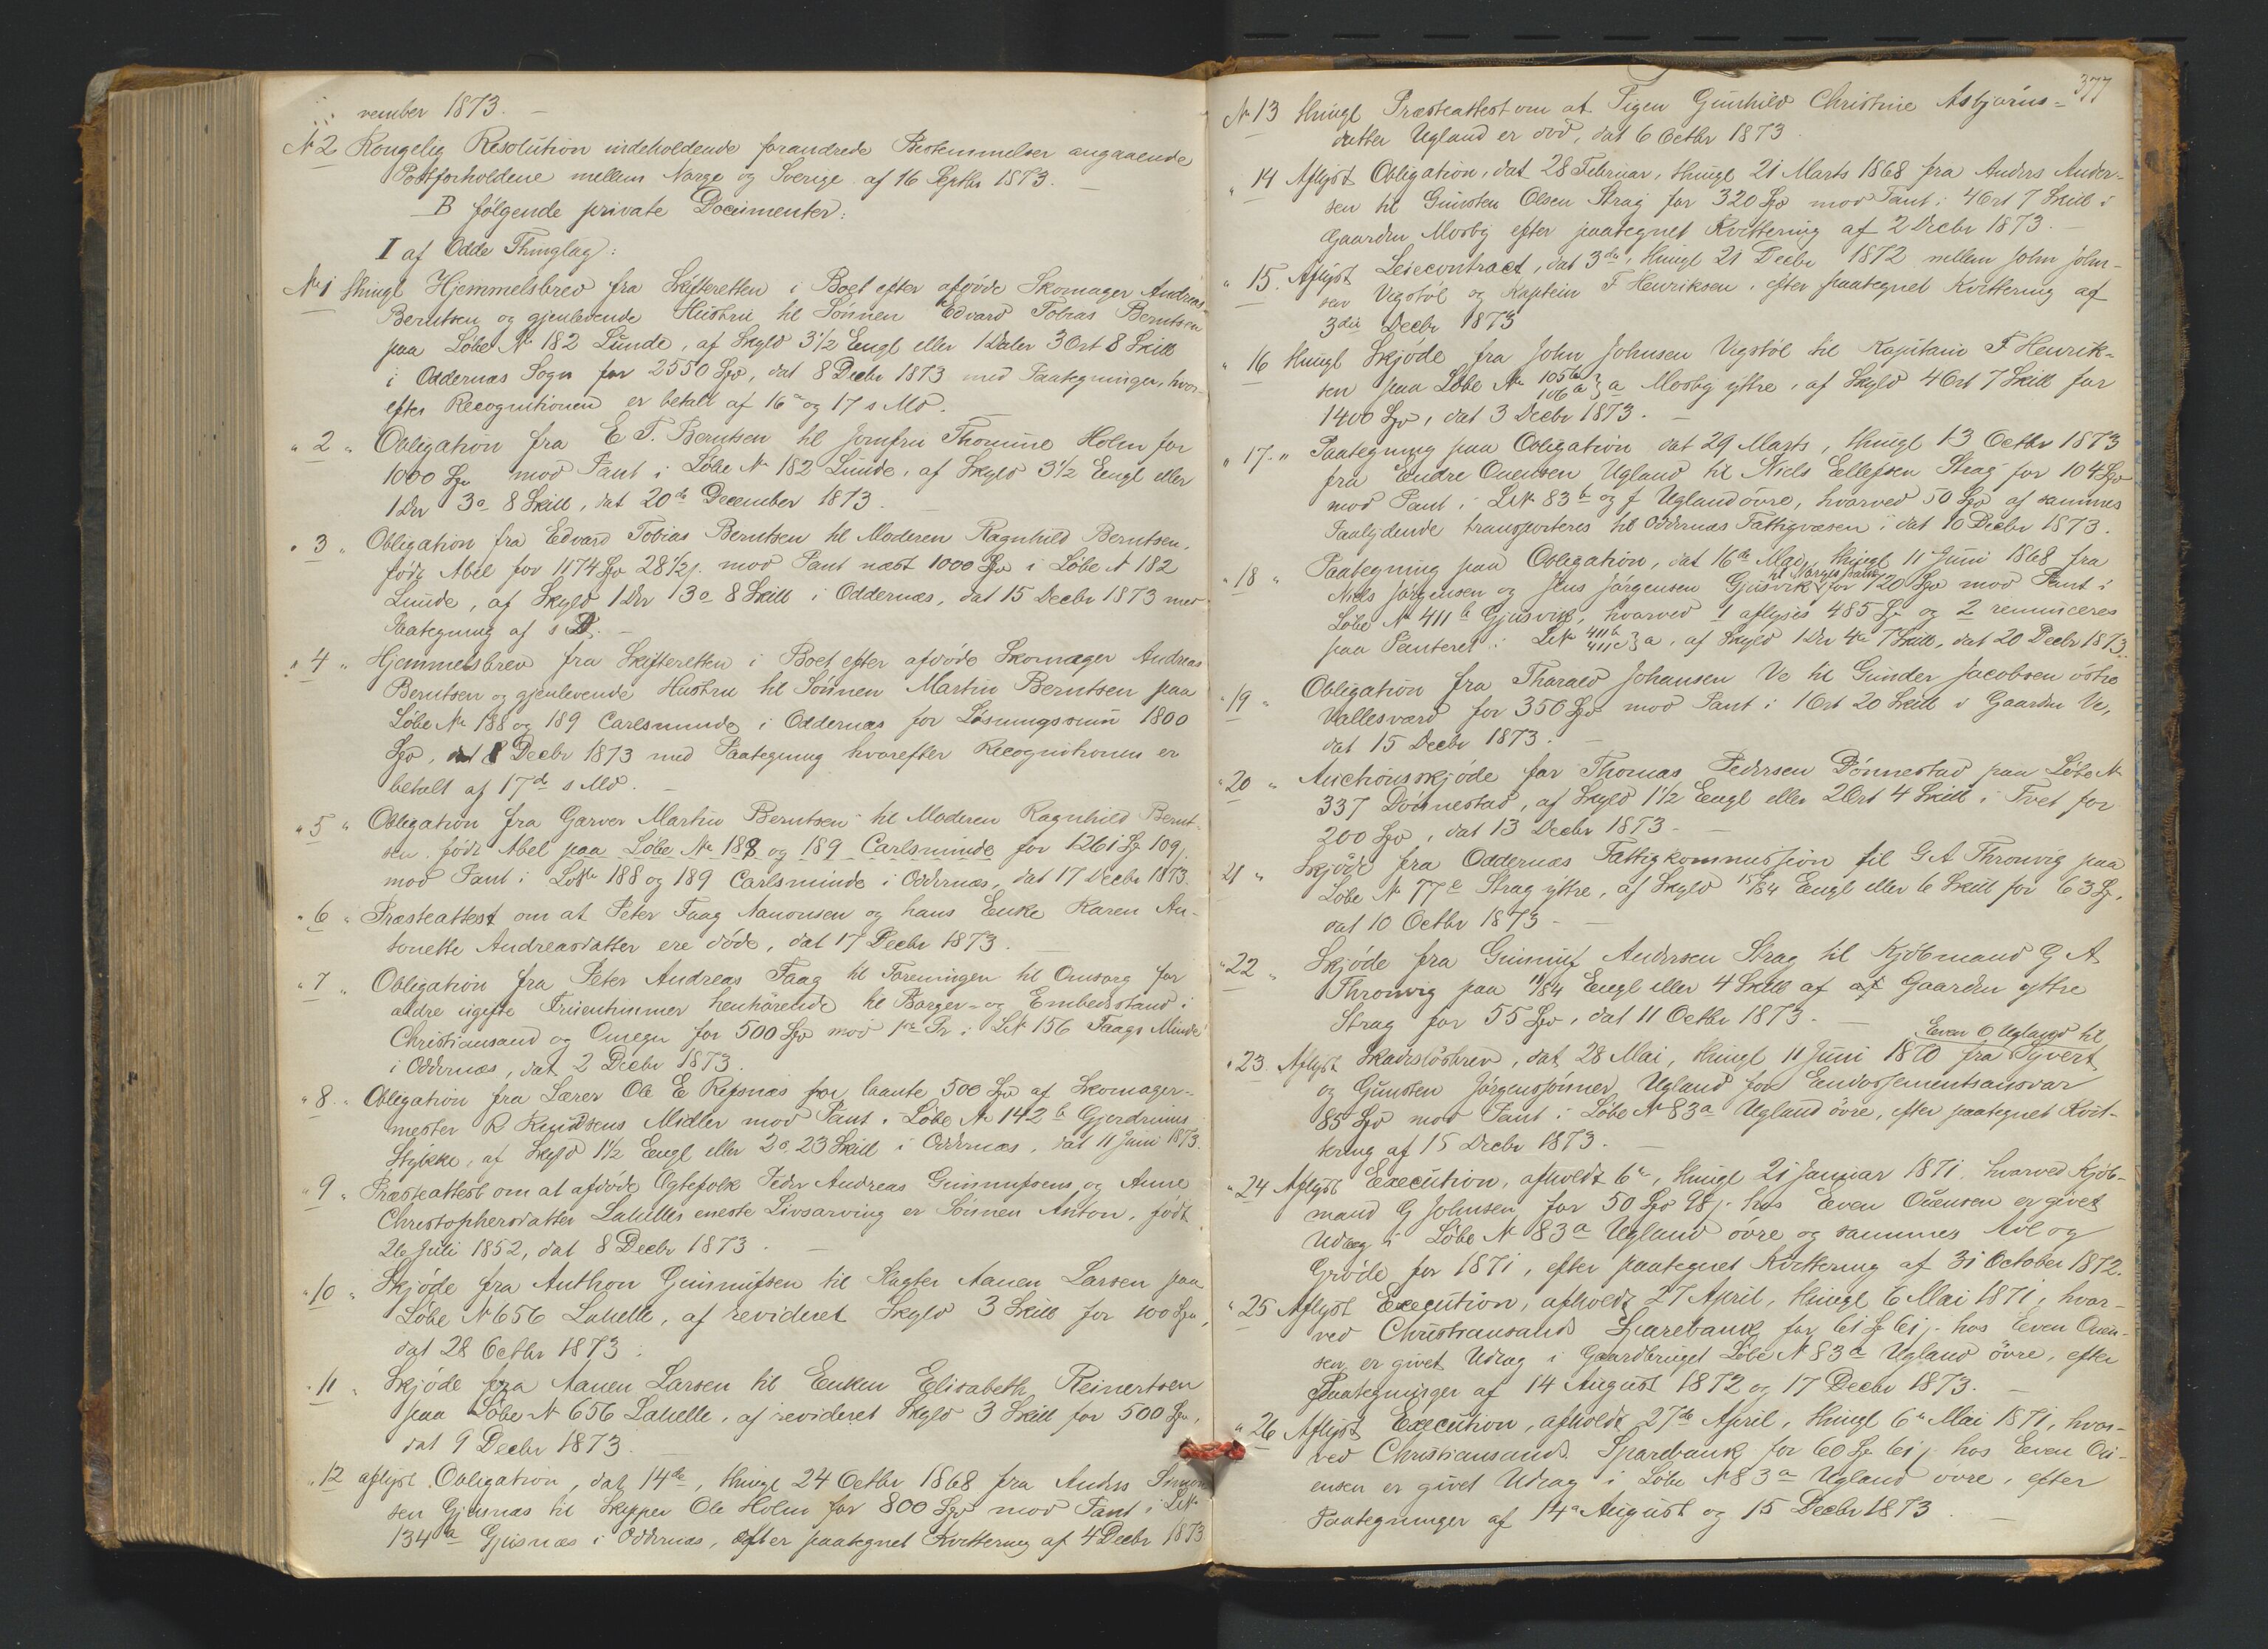 vember 1873. —
N 2 Kongelig Resolution indeholdende forandrede Bestemmelser angaaende
Postforholdene mellem Norge og Sverige af 16 Septbr 1873. —
B følgende private Documenter:
I af Odde Thinglag:
No 1 thingl Hjemmelsbrev fra Skifteretten i Boet efter afdøde Skomager Andreas
Berntsen og gjenlevende Hustru til Sønnen Edvard Tobias Berntsen
paa Løbe No 182 Lunde, af Skyld 3 1/2 Engl eller 1 Daler 3 Ort 8 Skill
i Oddernæs Sogn for 2550 Spd, dat 8 Decbr 1873 med Paategninger, hvor-
efter Recognitionen er betalt af 16de og 17 s Md. —
" 2 " Obligation fra E T. Berntsen til Jomfru Thomine Holm for
1000 Spd mod Pant i Løbe No 182 Lunde, af Skyld 3 1/2 Engl eller
1 Dlr 3 o 8 Skill, dat 20de December 1873. —
" 3 " Obligation fra Edvard Tobias Berntsen til Moderen Ragnhild Berntsen,
født Abel for 1174 Spd 28 1/2 s. mod Pant næst 1000 Spd i Løbe N 182
Lunde, af Skyld 1 Dlr 3 o 8 Skill i Oddernæs, dat 15 Decbr 1873 med
Paategning af s D. —
" 4 " Hjemmelsbrev fra Skifteretten i Boet efter afdøde Skomager Andreas
Berntsen og gjenlevende Hustru til Sønnen Martin Berntsen paa
Løbe No 188 og 189 Carlsminde i Oddernæs for Løsningssum 1800
Spd, dat 8 Decbr 1873 med Paategning hvorefter Recognitionen er
betalt af 17de s Md. —
" 5 " Obligation fra Garver Martin Berntsen til Moderen Ragnhild Bernt-
sen født Abel paa Løbe No 188 og 189 Carlsminde for 1261 Sp 109 s.
mod Pant i LNo 188 og 189 Carlsminde i Oddernæs, dat 17 Decbr 1873.
" 6 " Præsteattest om at Peter Faag Aanonsen og hans Enke Karen An-
tonette Andreasdatter ere døde, dat 17 Decbr 1873. —
" 7 " Obligation fra Peter Andreas Faag til Foreningen til Omsorg for
ældre ugifte Fruentimmer henhørende til Borger- og Embedsstand i
Christiansand og Omegn for 500 Spd mod 1ste Pr i LN 156 Faags Minde
i Oddernæs, dat 2 Decbr 1873.
" 8 " Obligation fra Lærer Ole E Refsnæs for laante 500 Spd af Skomager-
mester R Knudsens Midler mod Pant i Løbe No 142 b Gjerdrums
Stykke, af Skyld 1 1/2 Engl eller 2 o 23 Skill i Oddernæs, dat 11 Juni 1873.
" 9 " Præsteattest om at afdøde Ægtefolk Peder Andreas Gunnufsens og Anne
Christophersdatter Lahelles eneste Livsarving er Sønnen Anton, født
26 Juli 1852, dat 8 Decbr 1873. —
" 10 " Skjøde fra Anthon Gunnufsen til Slagter Aanen Larsen paa
Løbe N 656 Lahelle, af revideret Skyld 3 Skill for 100 Spd,
dat 28 Octbr 1873.
" 11 " Skjøde fra Aanen Larsen til Enken Elisabeth Reinertsen
paa Løbe N 656 Lahelle, af revideret Skyld 3 Skill for 500 Spd,
dat 9 Decbr 1873. —
" 12 aflyst Obligation, dat 14de, thingl 24 Octbr 1868 fra Anders
sen Gjusnæs til Skipper Ole Holm for 800 Spd mod Pant i LN
134 a Gjusnæs i Oddernæs, efter paategnet Kvittering af 4 Decbr 1873
377
No 13 thingl Præsteattest om at Pigen Gunhild Christine Asbjørns-
datter Ugland er død, dat 6 Octbr 1873.
" 14 Aflyst Obligation, dat 28 Februar, thingl 21 Marts 1868 fra Anders Ander-
sen til Gunsten Olsen Strag for 320 Spd mod Pant i 4 Ort 7 Skill i
Gaarden Mosby efter paategnet Kvittering af 2 Decbr 1873. —
" 15. Aflyst Leiecontract, dat 3die, thingl 21 Decbr 1872 mellem John John-
sen Vigstøl og Kaptein F Henriksen, efter paategnet Kvittering af
3die Decbr 1873
" 16 thingl Skjøde fra John Johnsen Vigstøl til Kapitain F Henrik-
sen paa Løbe No 105 b 106 a } a Mosby ytre, af Skyld 4 Ort 7 Skill for
1400 Spd, dat 3 Decbr 1873. —
" 17. " Paategning paa Obligation dat 29 Marts, thingl 13 Octbr 1873
fra Endre Ouensen Ugland til Niels Ellefsen Strag for 104 Spd
mod Pant i LN 83 b og f Ugland øvre, hvorved 50 Spd af sammes
Paalydende transporteres til Oddernæs Fattigvæsen, dat 10 Decbr 1873.
" 18 " Paategning paa Obligation, dat 16de Mai, thingl 11 Juni 1868 fra
Niels Jørgensen og Jens Jørgensen Gjusvik til Norges Bank for 720 Spd mod Pant i
Løbe No 411 b Gjusvik, hvorved 1 aflyses 485 Sp og 2 renunceres
paa Panteret i LNo 411 b 411 c } a, af Skyld 1 Dlr 4 o 7 Skill, dat 20 Decbr 1873.
" 19 " Obligation fra Tharald Johansen Ve til Gunder Jacobsen østre
Vallesværd for 350 Spd mod Pant i 1 Ort 20 Skill i Gaarden Ve,
dat 15 Decbr 1873. —
" 20 " Auctionsskjøde for Thomas Pedersen Dønnestad paa Løbe N
337 Dønnestad, af Skyld 1 1/2 Engl eller 2 Ort 4 Skill i Tvet for
200 Spd, dat 13 Decbr 1873. —
21 " Skjøde fra Oddernæs Fattigkommission til G A Thronvig paa
Løbe N 77 e Strag ytre, af Skyld 15/84 Engl eller 6 Skill for 63 Sp,
dat 10 Octbr 1873 —
" 22 " Skjøde fra Gunnuf Andersen Strag til Kjøbmand G A
Thronvig paa 11/84 Engl eller 4 Skill af af Gaarden ytre
Strag for 55 Spd, dat 11 Octbr 1873. —
Even O Ugland til
" 23. Aflyst Skadesløsbrev, dat 28 Mai, thingl 11 Juni 1870 fra Syvert
og Gunsten Jørgenssønner Ugland for Endossementsansvar
85 Spd mod Pant i Løbe N 83 a Ugland øvre, efter paategnet Kvit-
tering af 15 Decbr 1873.
" 24 Aflyst Execution, afholdt 6te, thingl 21 Januar 1871, hvorved Kjøb-
mand G Johnsen for 50 Spd 98 s. hos Even Ouensen er givet
Udlæg i Løbe N 83 a Ugland øvre og sammes Avl og
Grøde for 1871, efter paategnet Kvittering af 31 October 1872.
" 25 Aflyst Execution, afholdt 27 April, thingl 6 Mai 1871, hvor-
ved Christiansands Sparebank for 61 Sp 61 s. hos Even Ouen-
sen er givet Udlæg i Gaardbruget Løbe N 83 a Ugland øvre, efter
Paategninger af 14 August 1872 og 17 Decbr 1873. —
" 26 Aflyst Execution, afholdt 27de April, thingl 6te Mai 1871, hvor-
ved Christiansands Sparebank for 60 Sp 61 s. hos Even Ou-
ensen er givet Udlæg i Løbe N 83 a Ugland øvre, efter
Paategninger af 14de August og 15 Decbr 1873. —